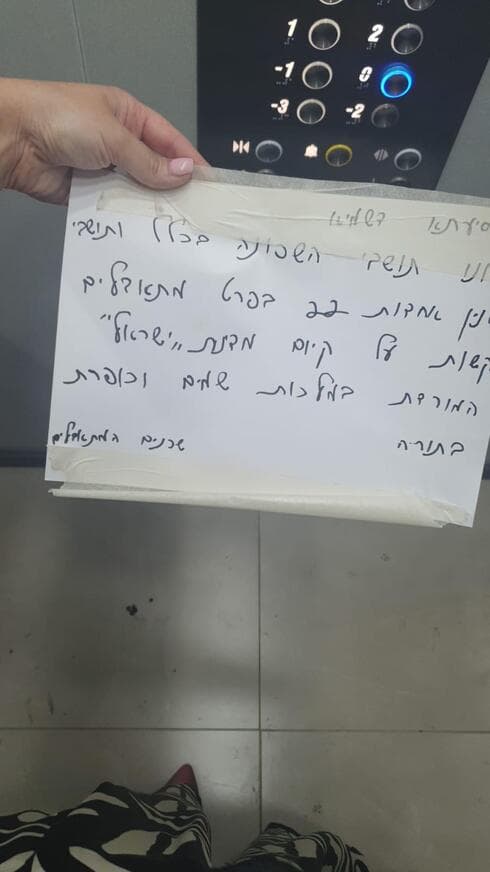 1 2
-1 0
-3 -2
סיעתא דשמיא
תושבי השכונה בכלל ותושבי
אחדות 22 בפרט מתאבלים
קשות על קיום מדינת „ישראל"
המורדת במלכות שמים וכופרת
בתורה שכנים המתאבלים